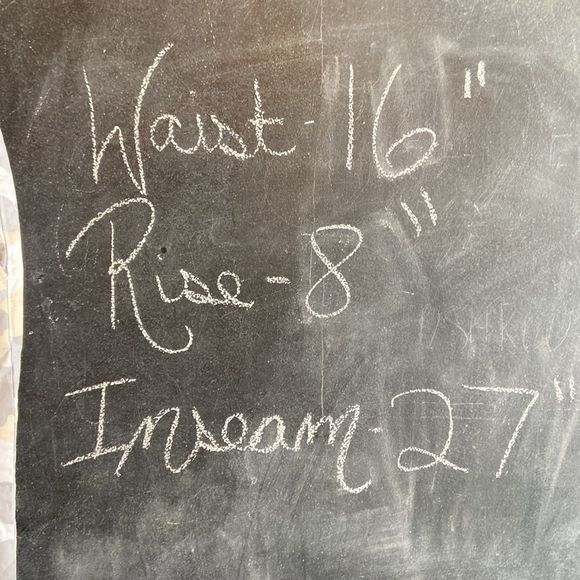 Waist - 16"
Rise - 8"
Inseam - 27"